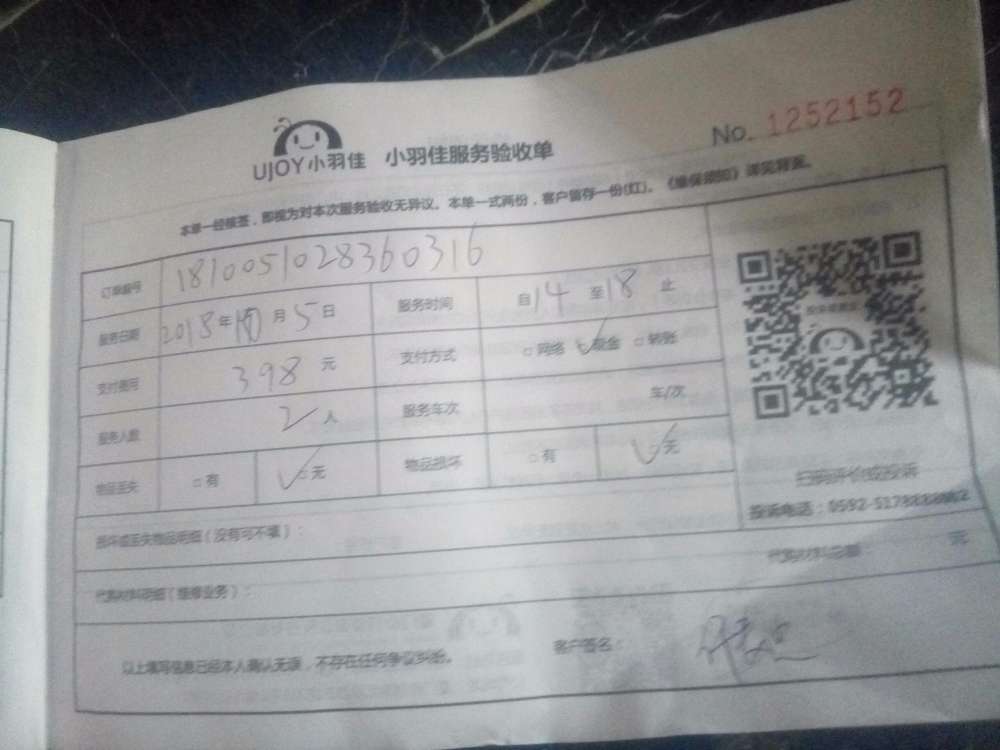 UJOY小羽佳 小羽佳服务验收单
No. 1252152
本单一经接签，即视为对本次服务验收无异议。本单一式两份，客户留存一份(红)。《维保须知》详见背面。
订单编号 1810051028360316
服务日期 2018年10月5日 服务时间 自14至18止
支付费用 398元 支付方式 □网络 □现金 □转账
服务人数 2人 服务车次 车/次
物品丢失 □有 □无 物品损坏 □有 □无
扫码评价或投诉
投诉电话：0592-5178888
损坏或丢失物品明细（没有可不填）：
代购材料明细（维修业务）： 代购材料总额： 元
以上填写信息已经本人确认无误，不存在任何争议纠纷。 客户签名：